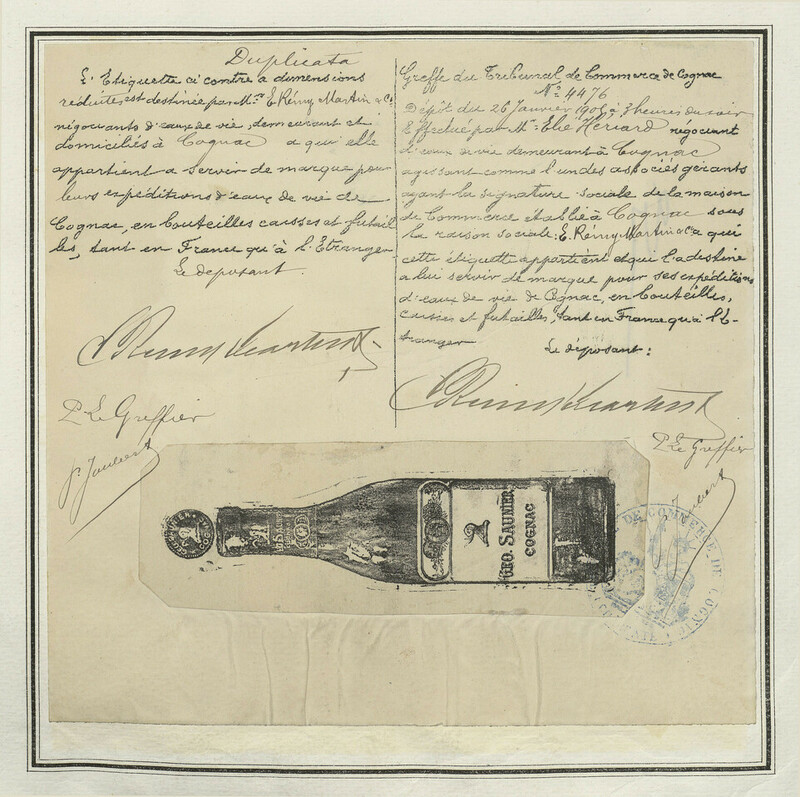 Duplicata
L'Etiquette ci contre a dimensions
réduites est destinée par Mrs E. Rémy Martin & Cie
négociants d'eaux de vie, demeurant et
domiciliés à Cognac a qui elle
appartient a servir de marque pour
leurs expéditions d'eaux de vie de
Cognac, en bouteilles caisses et futail
les, tant en France qu'à l'Etranger
Le déposant.
E Remy Martin & Co
P. Le Greffier
Greffe du Tribunal de Commerce de Cognac
No 4476
Dépôt du 26 Janvier à 3 heures du soir
Effectué par Mr Elie Hériard négociant
d'eaux de vie demeurant à Cognac
agissant comme l'un des associés gérants
ayant la signature sociale de la maison
de Commerce etablie à Cognac sous
la raison sociale: E. Rémy Martin & Ca qui
cette étiquette appartient et qui l'a destine
a lui servir de marque pour ses expéditions
d'eaux de vie de Cognac, en bouteilles,
caisses et futailles, tant en France qu'à l'E-
tranger
Le déposant:
E Remy Martin & Co
P. Le Greffier
GEO. SAUNIER
COGNAC
DE COMMERCE DE COGNAC